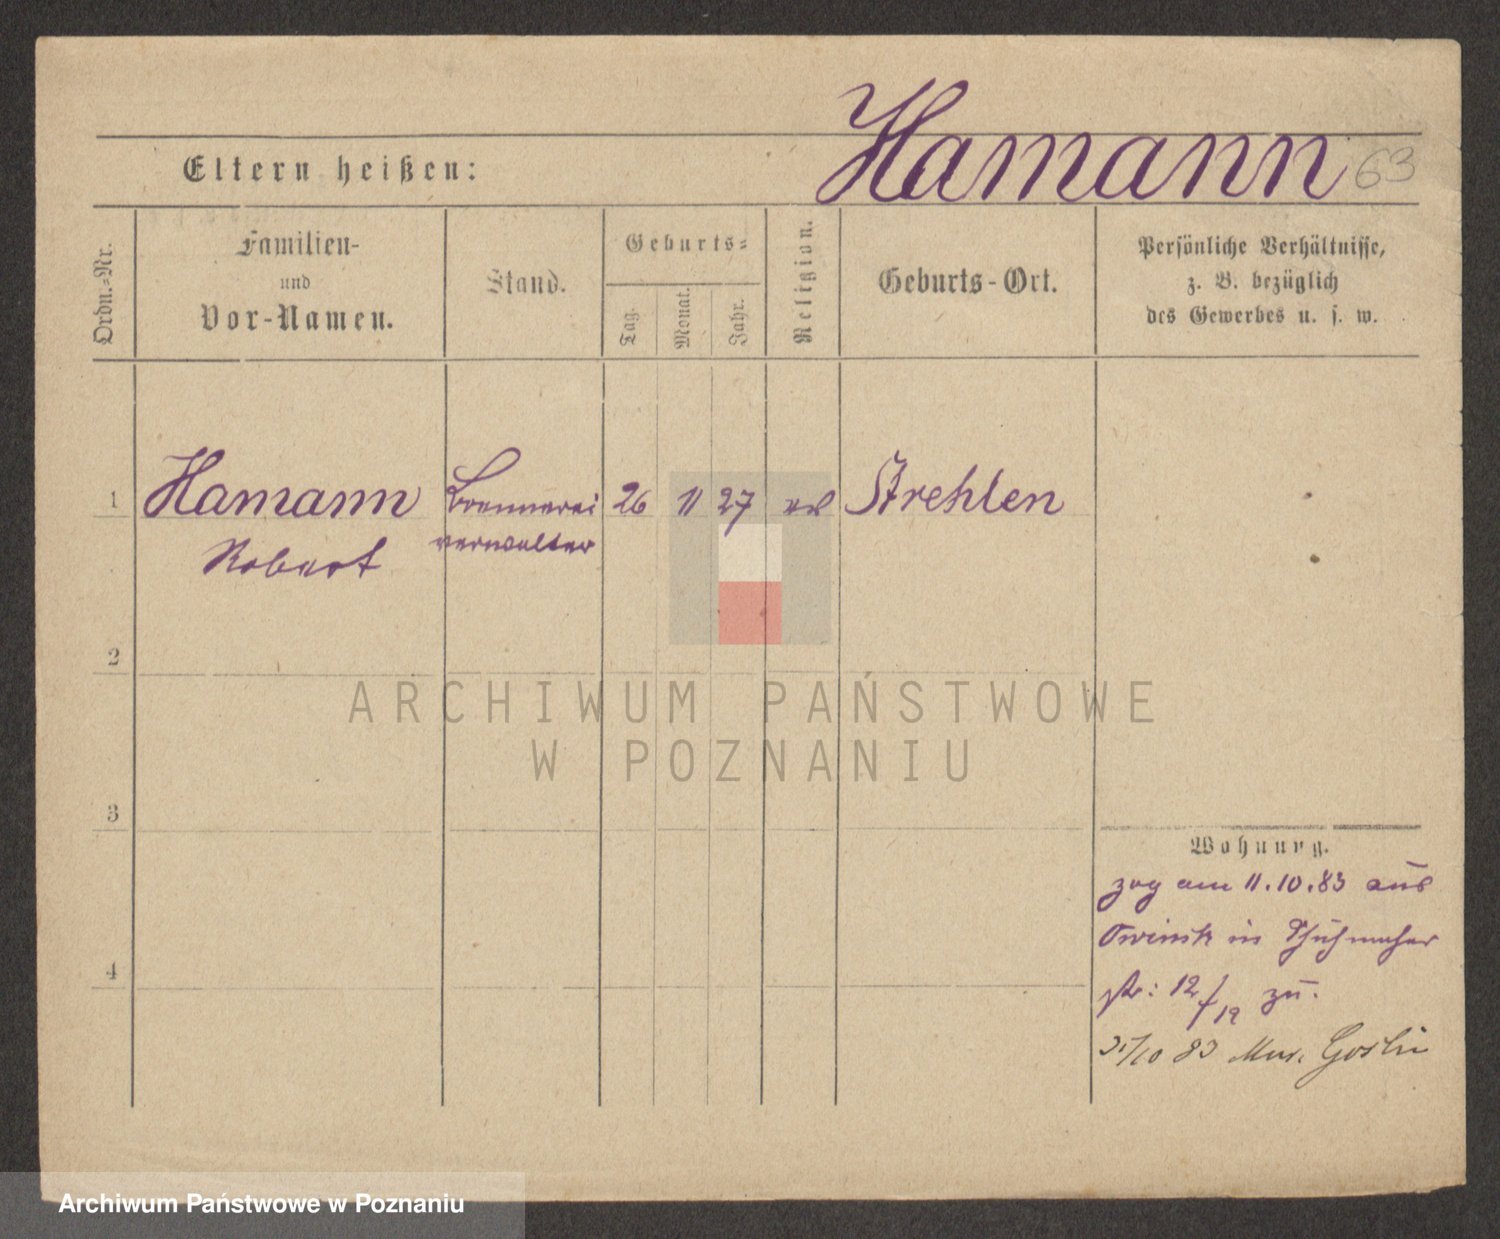 Hamann 63
Eltern heißen:
Ordn.-Nr.
Familien-
und
Vor-Namen.
Stand.
Geburts-
Tag.
Monat.
Jahr.
Religion.
Geburts-Ort.
Persönliche Verhältnisse,
z. B. bezüglich
des Gewerbes u. s. w.
1 Hamann Brennerei 26 11 27 Strehlen
Robert verwalter
2
3
4
Wohnung.
zog am 11.10.83 aus
Owinsk in Schuhmacher
str: 12/19 zu.
/10 83 Goslin
ARCHIWUM PAŃSTWOWE
W POZNANIU
Archiwum Państwowe w Poznaniu